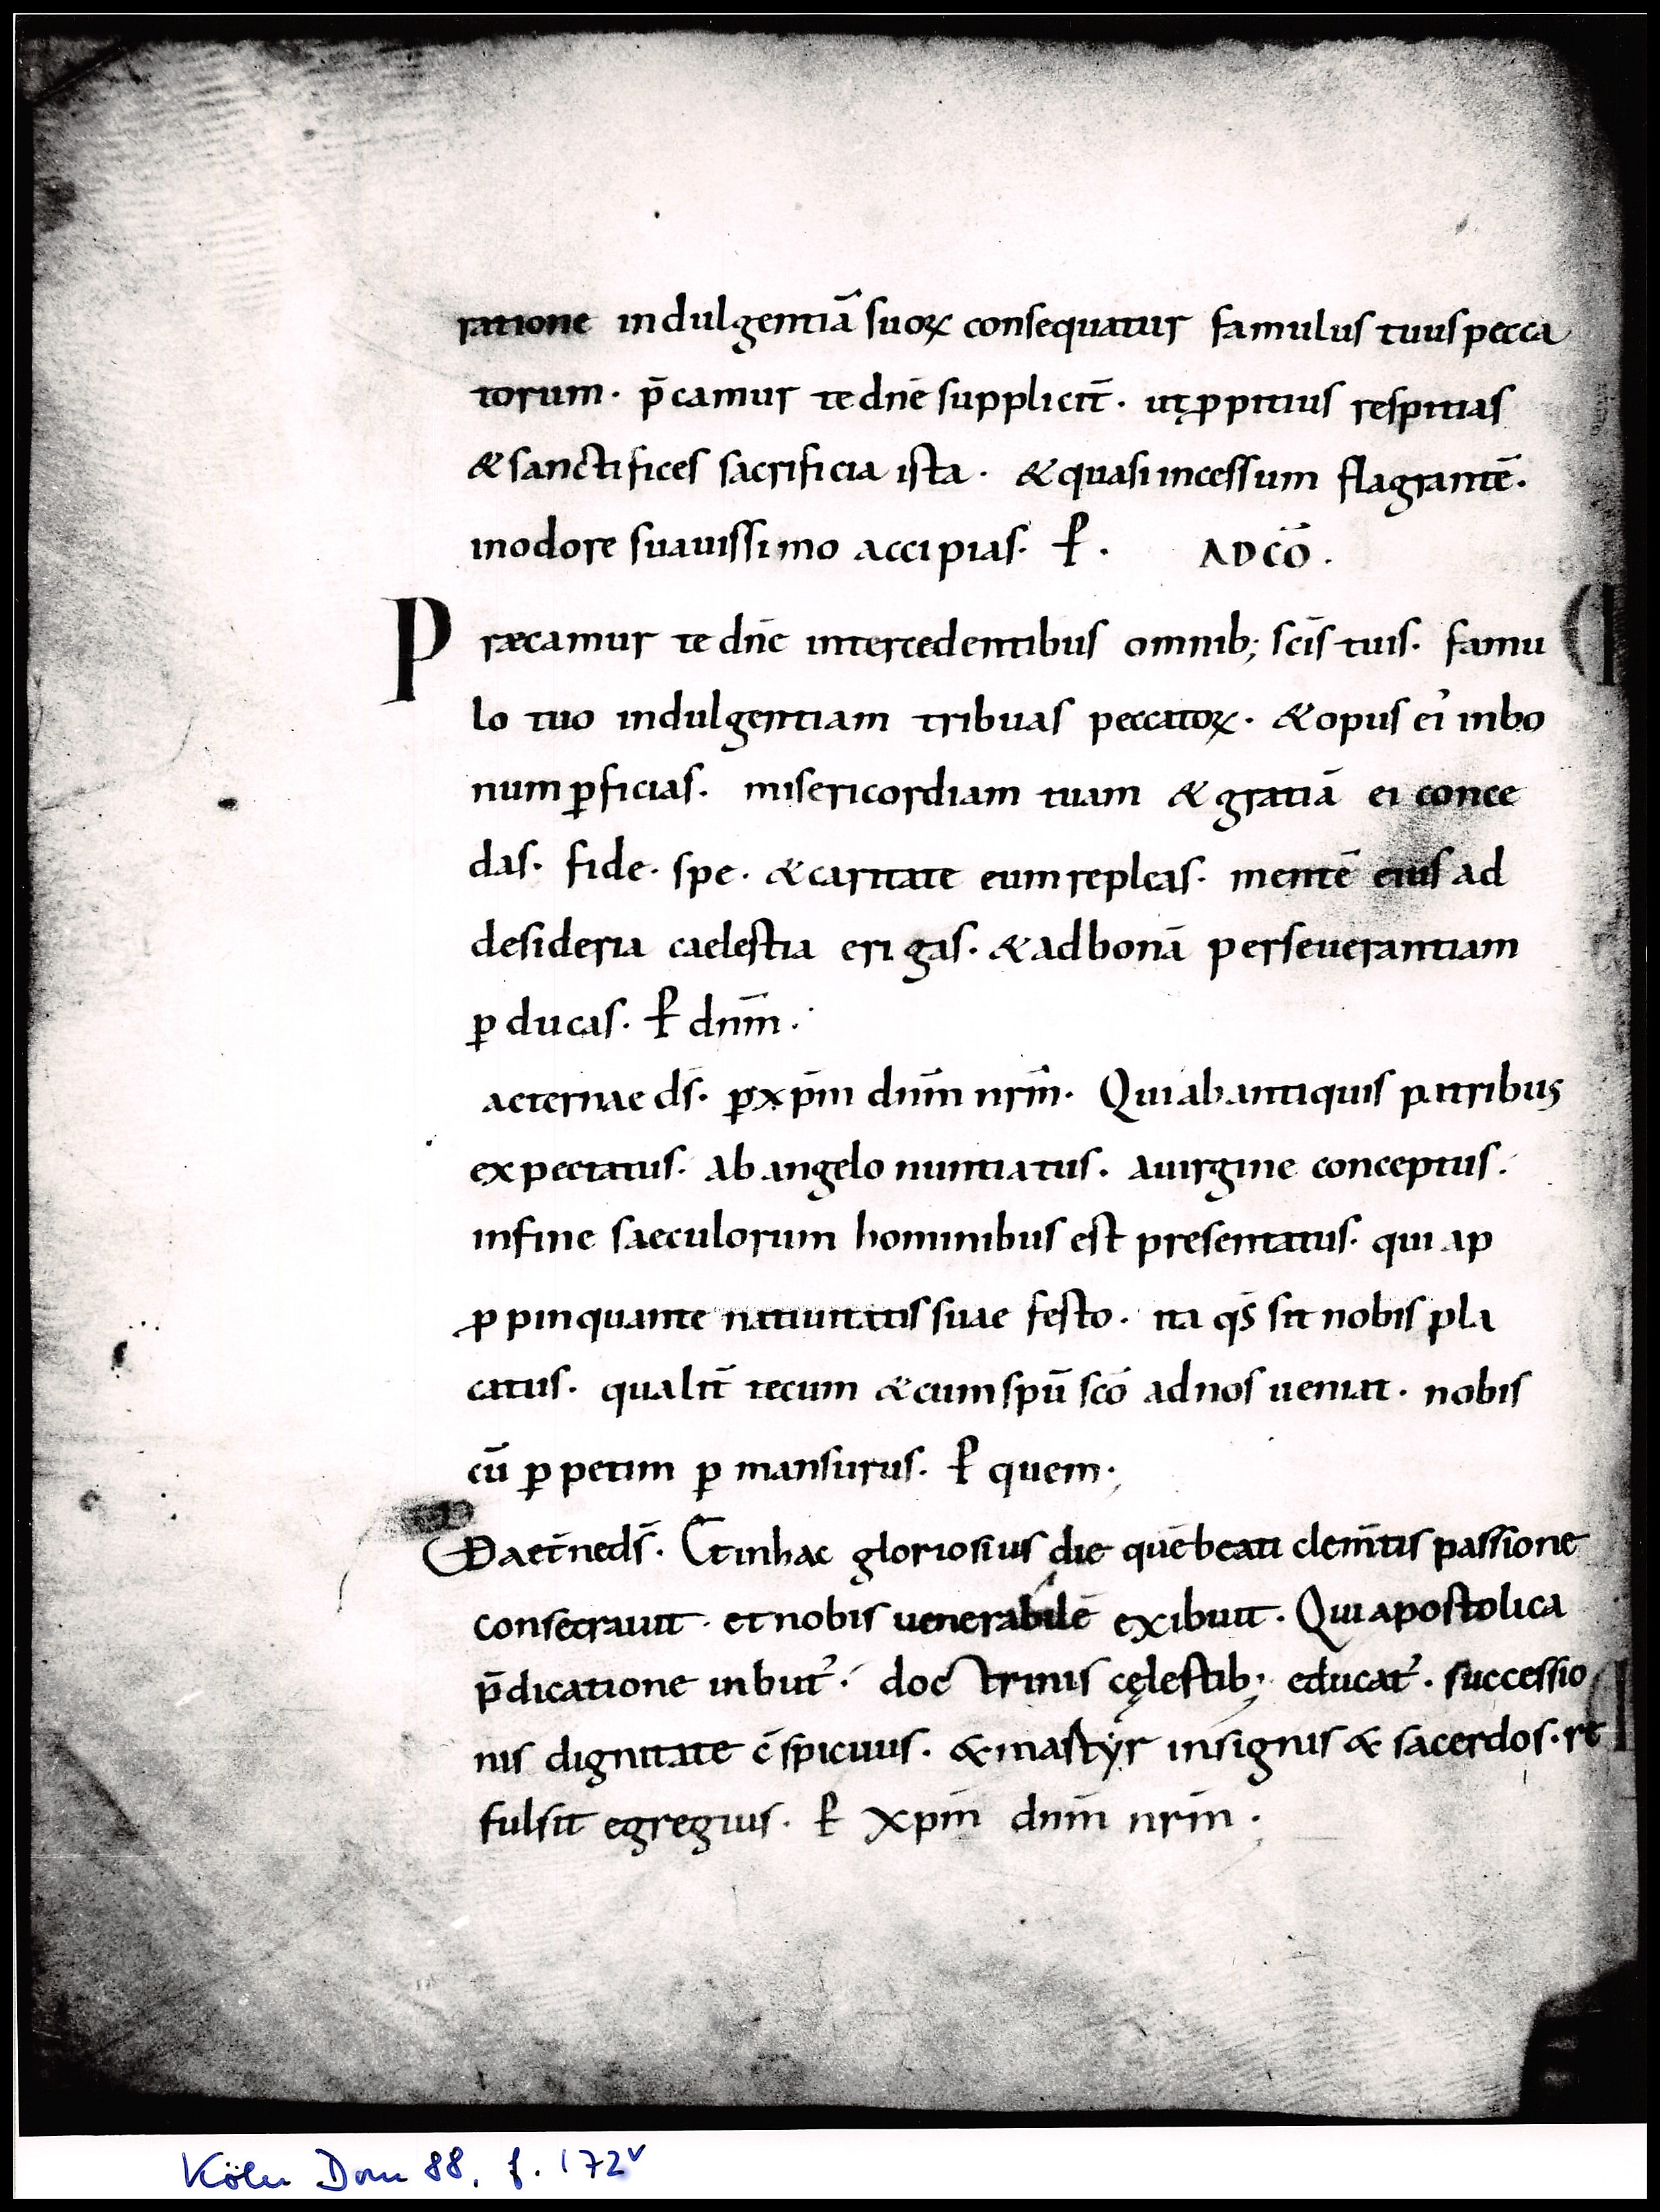 ratione indulgentiā suoꝝ consequatur famulus tuus pecca
torum· p̄camur te dn̄e suppliciť· ut ꝓpitius respitias
& sanctifices sacrificia ista· & quasi incessum flagrantē·
in odore suauissimo accipias· P̶· AD CŌ·
Præcamur te dn̄e intercedentibus omnib; sc̄is tuis· famu
lo tuo indulgentiam tribuas peccatoꝝ· & opus ei' in bo
num ꝑficias· misericordiam tuam & gratiā ei conce
das· fide· spe· & caritate eum repleas· mentē eius ad
desideria caelestia erigas· & ad bonā perseuerantiam
ꝑducas· P̶ dn̄m·
aeternae ds̄· ꝑ xp̄m dn̄m nr̄m· Qui ab antiquis patribus
expectatus· ab angelo nuntiatus· a uirgine conceptus·
in fine saeculorum hominibus est presentatus· qui ap
ꝓpinquante natiuitatis suae festo· ita qs̄ sit nobis pla
catus· qualit̄ tecum & cum sp̄u sc̄o ad nos ueniat· nobis
cū ꝑpetim ꝑmansurus· P̶ quem;
VD aet̄ne ds̄· Et in hac gloriosius die quē beati clem̄tis passione
consecrauit· et nobis uenerabilē exibuit· Qui apostolica
p̄dicatione inbut'· doctrinis cęlestib; educat'· successio
nis dignitate c̄spicuus· & martyr insignis & sacerdos· re
fulsit egregius· P̶ xp̄m dn̄m nr̄m·
Köln Dom 88, f. 172v